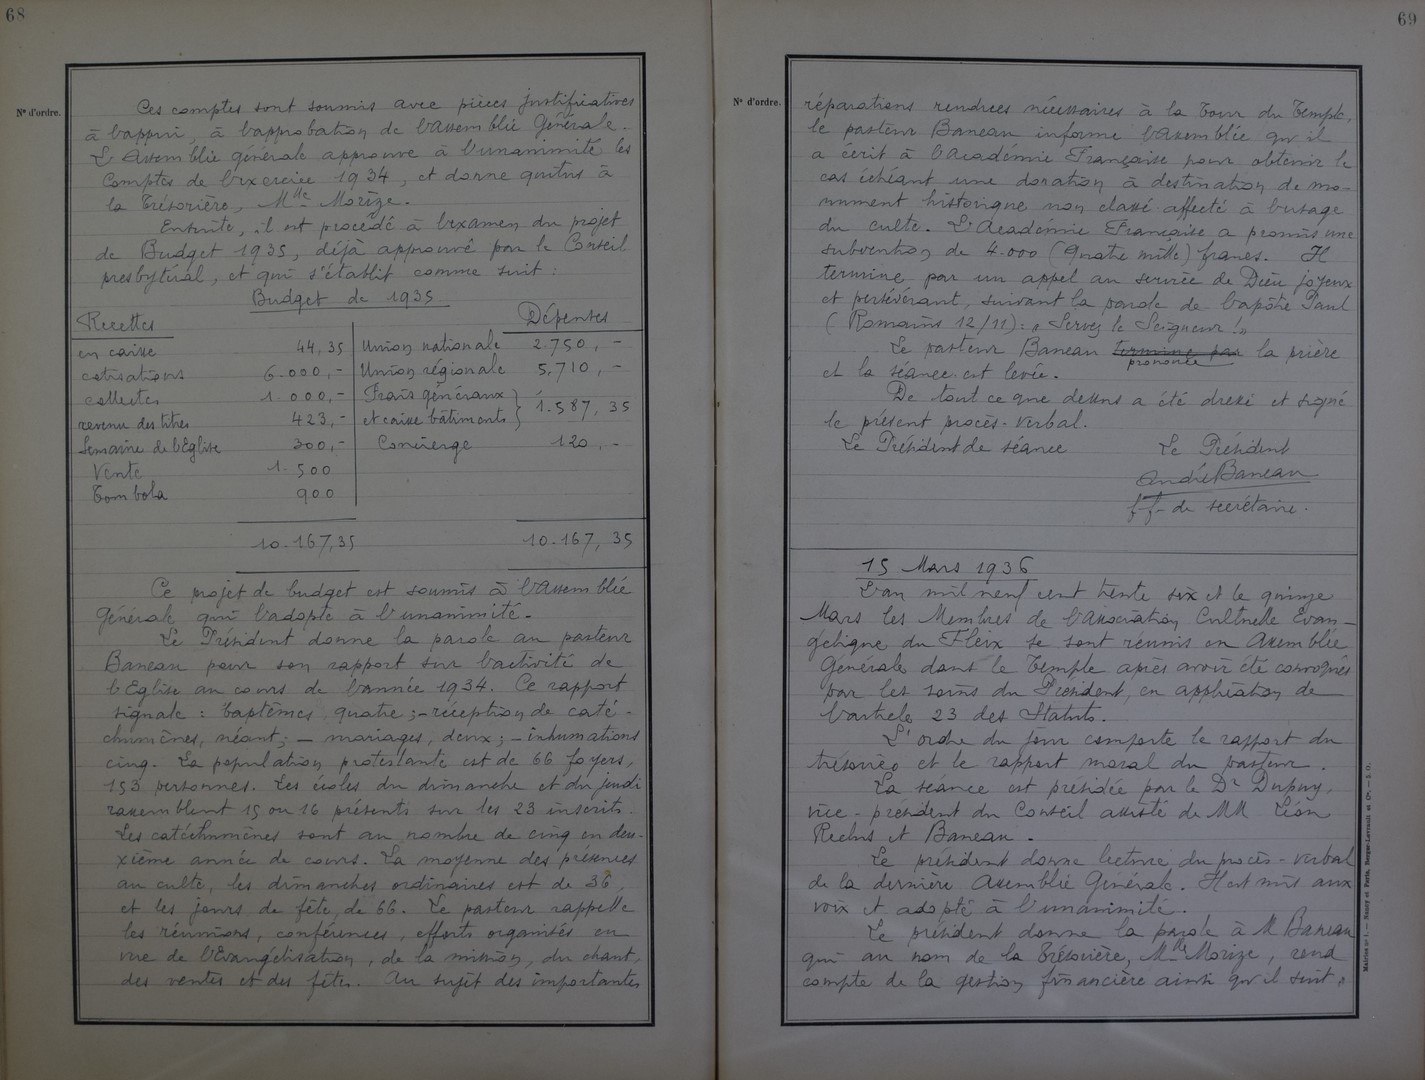 68
Nº d'ordre.
Ces comptes sont soumis avec pièces justificatives
à l'appui, à l'approbation de l'Assemblée Générale.
L'Assemblée générale approuve à l'unanimité les
Comptes de l'exercice 1934, et donne quitus à
la Trésorière, Mlle Morize.
Ensuite, il est procédé à l'examen du projet
de Budget 1935, déjà approuvé par le Conseil
presbytéral, et qui s'établit comme suit :
Budget de 1935
Recettes Dépenses
en caisse 44,35 Union nationale 2.750,-
cotisations 6.000,- Union régionale 5.710,-
collectes 1.000,- Frais généraux
revenu des titres 423,- et caisse bâtiments } 1.587,35
Semaine de l'Eglise 300,- Concierge 120,-
Vente 1.500
Tombola 900
10.167,35 10.167,35
Ce projet de budget est soumis à l'Assemblée
Générale qui l'adopte à l'unanimité.
Le Président donne la parole au pasteur
Baneau pour son rapport sur l'activité de
l'Eglise au cours de l'année 1934. Ce rapport
signale : baptêmes, quatre ; - réception de caté-
chumènes, néant ; - mariages, deux ; - inhumations
cinq. La population protestante est de 66 foyers,
153 personnes. Les écoles du dimanche et du jeudi
rassemblent 15 ou 16 présents sur les 23 inscrits.
Les catéchumènes sont au nombre de cinq en deu-
xième année de cours. La moyenne des présences
au culte, les dimanches ordinaires est de 36,
et les jours de fête, de 66. Le pasteur rappelle
les réunions, conférences, efforts organisés en
vue de l'Evangélisation, de la mission, du chant,
des ventes et des fêtes. Au sujet des importantes
69
Nº d'ordre.
réparations rendues nécessaires à la Tour du Temple,
le pasteur Baneau informe l'Assemblée qu'il
a écrit à l'Académie Française pour obtenir le
cas échéant une donation à destination de mo-
nument historique non classé affecté à l'usage
du culte. L'Académie Française a promis une
subvention de 4.000 (Quatre mille) francs. Il
termine par un appel au service de Dieu joyeux
et persévérant, suivant la parole de l'apôtre Paul
(Romains 12/11) : « Servez le Seigneur ! »
Le pasteur Baneau termine par la prière
prononce
et la séance est levée.
De tout ce que dessus a été dressé et signé
le présent procès-verbal.
Le Président de séance Le Président
André Baneau
f.f. de secrétaire.
15 Mars 1936
L'an mil neuf cent trente six et le quinze
Mars les Membres de l'Association Cultuelle Evan-
gélique du Fleix se sont réunis en Assemblée
Générale dans le Temple après avoir été convoqués
par les soins du Président, en application de
l'article 23 des Statuts.
L'ordre du jour comporte le rapport du
trésorier et le rapport moral du pasteur.
La séance est présidée par le Dr Dupuy,
vice-président du Conseil assisté de MM Léon
Reclus et Baneau.
Le président donne lecture du procès-verbal
de la dernière Assemblée Générale. Il est mis aux
voix et adopté à l'unanimité.
Le président donne la parole à M Baneau
qui au nom de la Trésorière, Mlle Morize, rend
compte de la gestion financière ainsi qu'il suit :
Nancy et Paris, Berger-Levrault et Cie